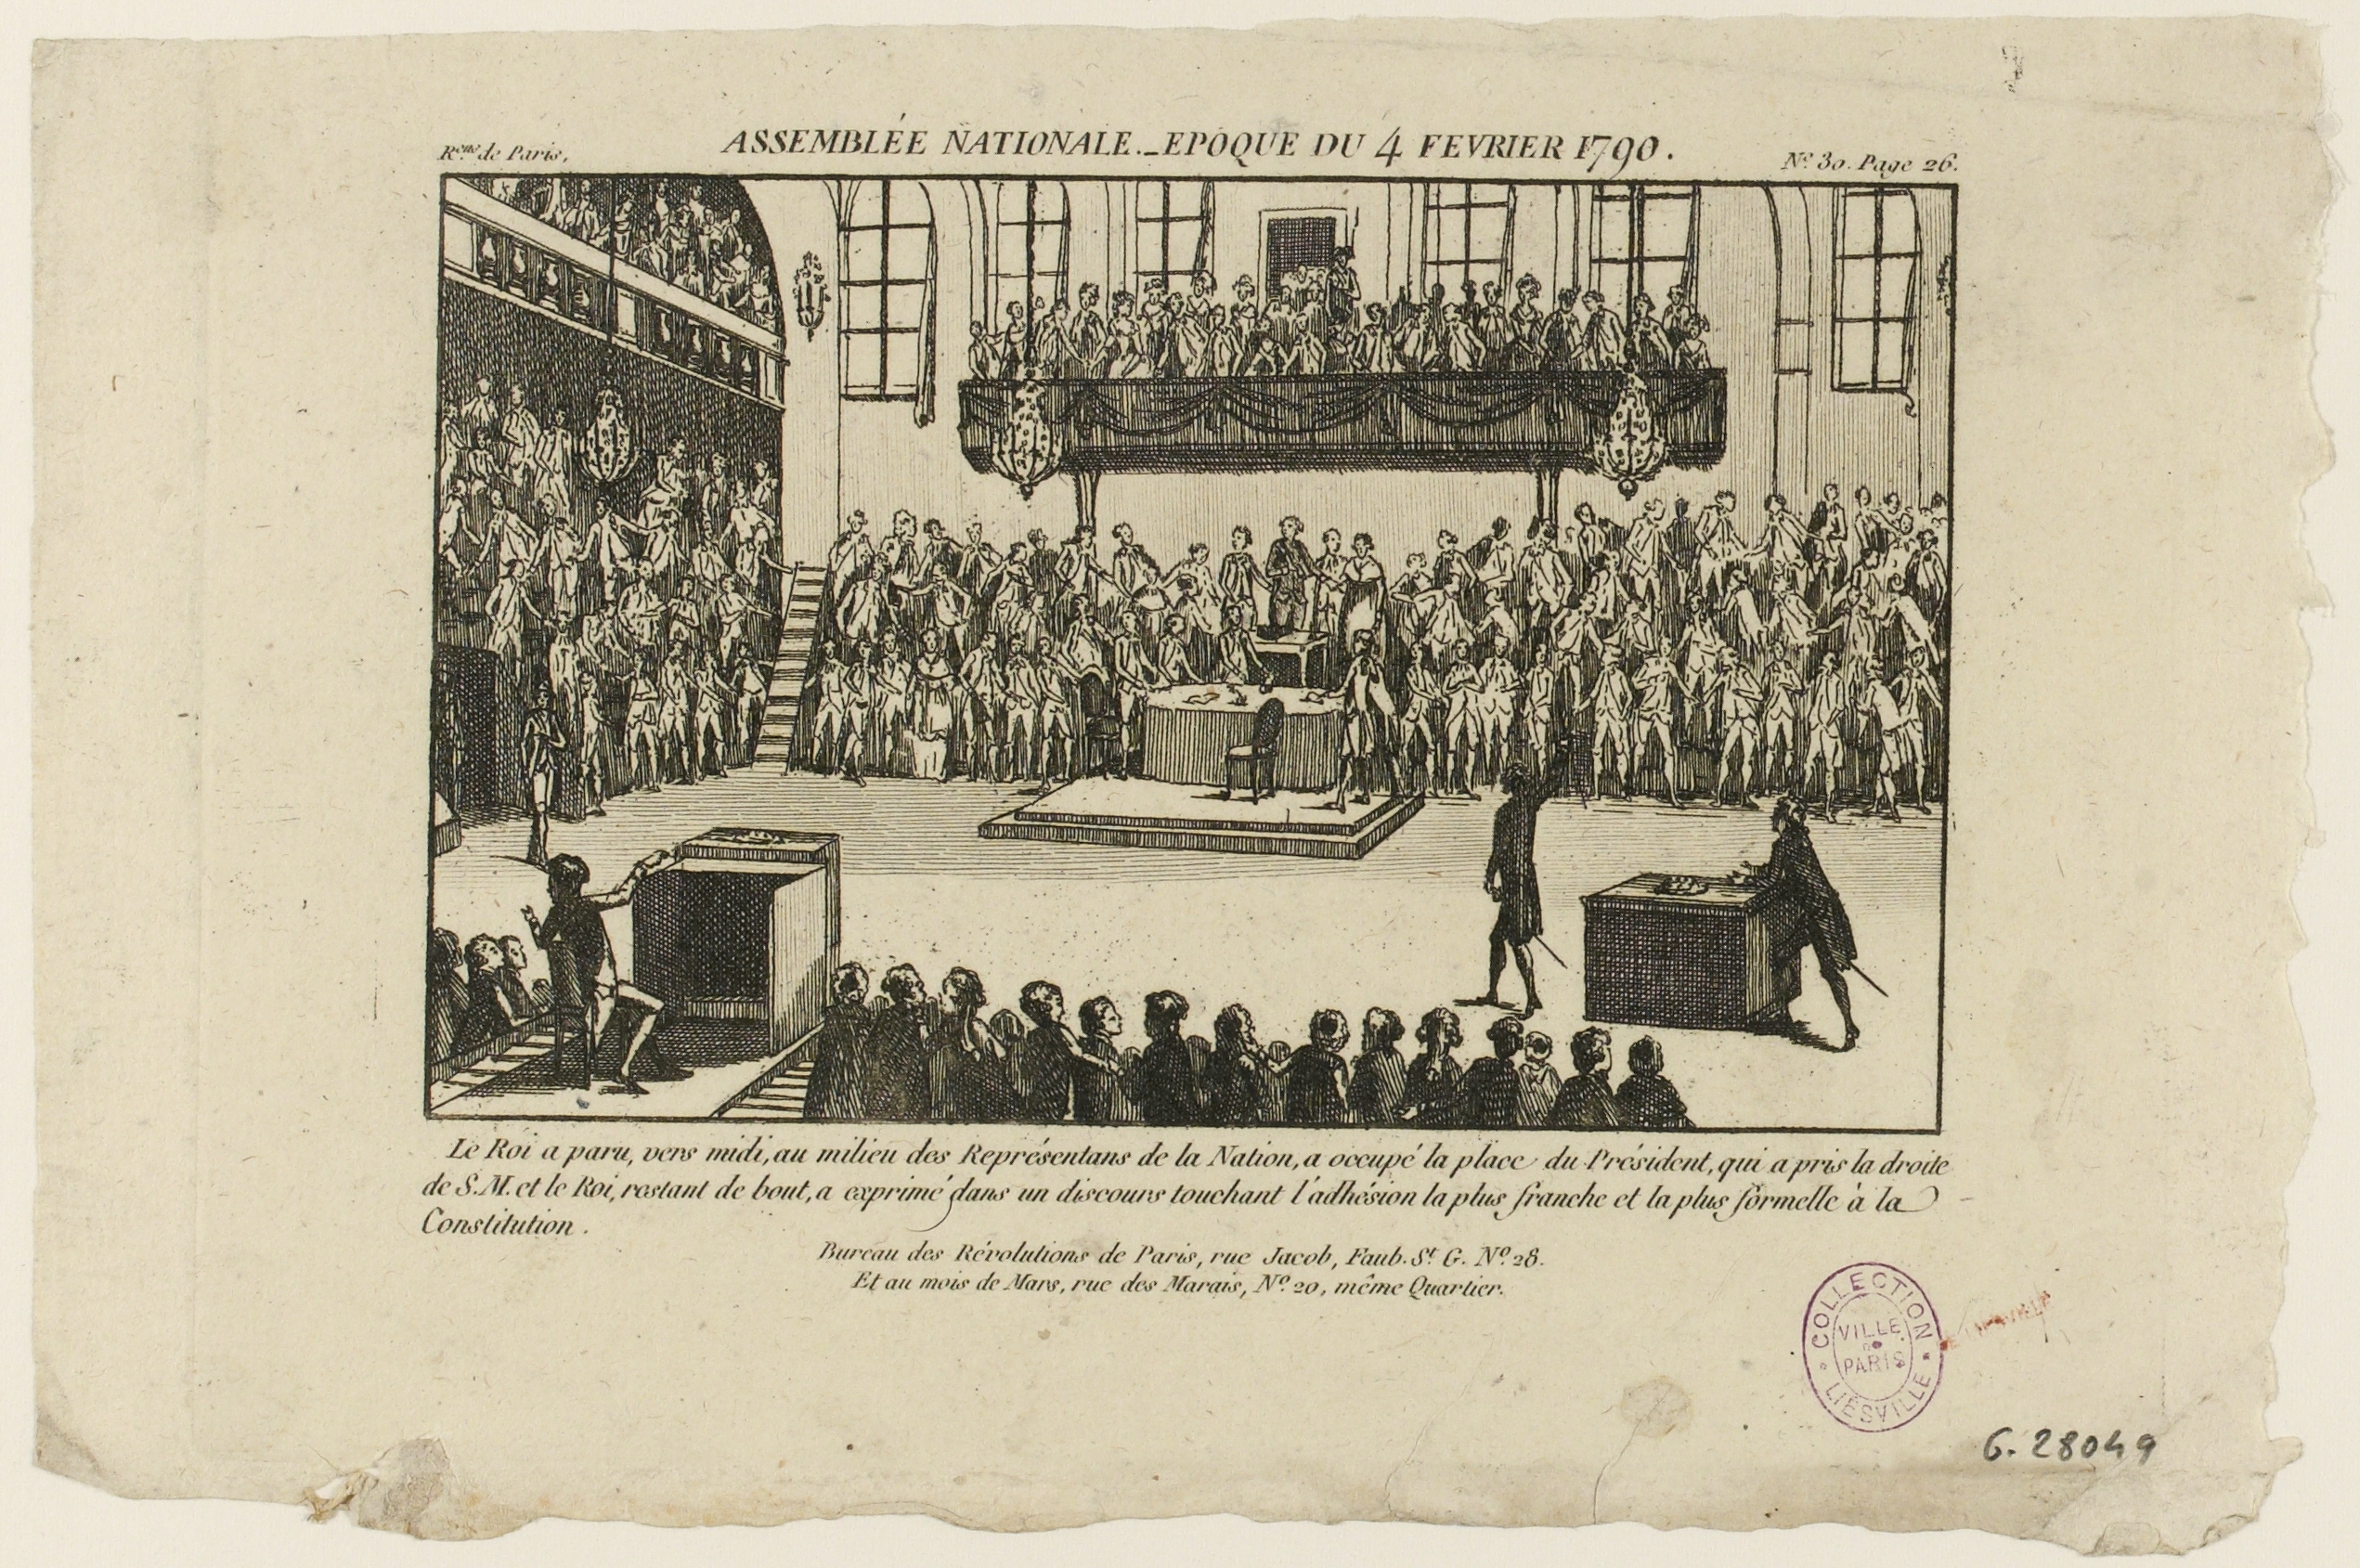 Rons de Paris.
ASSEMBLÉE NATIONALE._EPOQUE DU 4 FEVRIER 1790.
No 30. Page 26.
Le Roi a paru, vers midi, au milieu des Représentans de la Nation, a occupé la place du Président, qui a pris la droite
de S. M. et le Roi, restant de bout, a exprimé dans un discours touchant l'adhésion la plus franche et la plus formelle à la
Constitution.
Bureau des Révolutions de Paris, rue Jacob, Faub. St G. No 28.
Et au mois de Mars, rue des Marais, No 20, même Quartier.
COLLECTION
VILLE
DE
PARIS
LIESVILLE
G. 28049